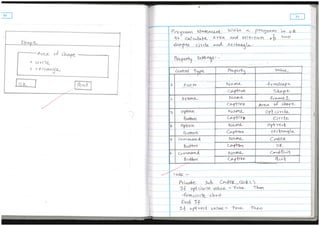 Shape
Area of shape
circle
rectangle
OK
Quit
Program Statement Write a program in VB
to calculate Area and attribute of two
shapes circle and rectangle.
Property Settings:-
Control Type Property Value
Form Name frmshape
Caption Shape
Frame Name Frame1
Caption Area of shape
Option Name Optcircle
Button Caption Circle
Option Name Optrect
Button Caption rectangle
Command Name Cmdok
Button Caption OK
Command Name CmdQuit
Button Caption Quit
Code:-
Private Sub Cmdok_click()
If optcircle.value = True Then
frmcircle.show
End If
If optrect.value = True Then